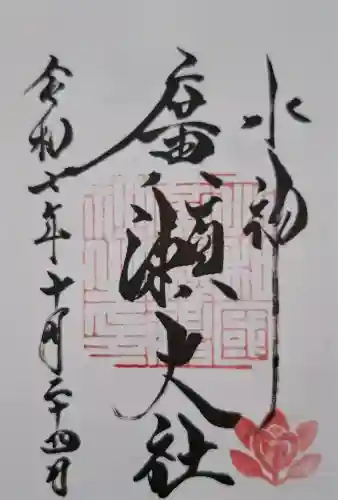 水神
廣瀬大社
令和七年十月二十四日